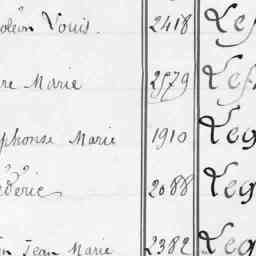 oléon Louis. 2418 Lef
re Marie 2579 Lef
phonse Marie 1910 Leg
édéric 2088 Leg
n Jean Marie 2382 Leg